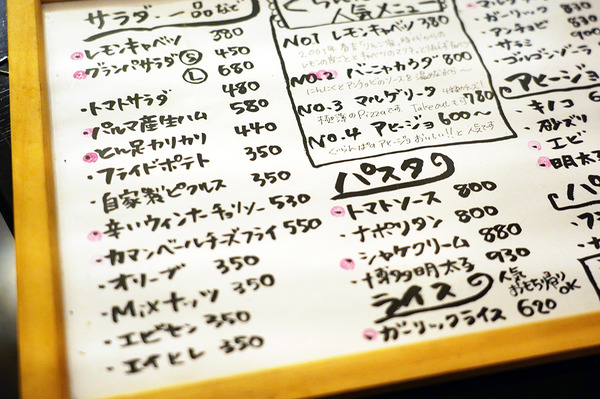 サラダ・一品など
・レモンキャベツ 380
・グランパサラダ Ⓢ 450
Ⓛ 680
・トマトサラダ 480
・パルマ産生ハム 580
・とん足カリカリ 440
・フライドポテト 350
・自家製ピクルス 350
・辛いウィンナーチョリソー 530
・カマンベールチーズフライ 550
・オリーブ 350
・Mixナッツ 350
・エビセン 350
・エイヒレ 350
人気メニュー
No1 レモンキャベツ 380
No.2 バーニャカウダ 800
にんにくとアンチョビのソースを温めながら〜
No.3 マルゲリータ 780
極薄のPizzaです。Take outもOK
No.4 アヒージョ 600〜
パスタ
・トマトソース 800
・ナポリタン 800
・シャケクリーム 880
・博多明太子 930
ライス
人気
おもち帰り
OK
・ガーリックライス 620
・マルゲリータ
・ガーリック
・アンチョビ
・サラミ
・ゴルゴンゾーラ
アヒージョ
・キノコ 6
・砂ズリ
・エビ
・明太